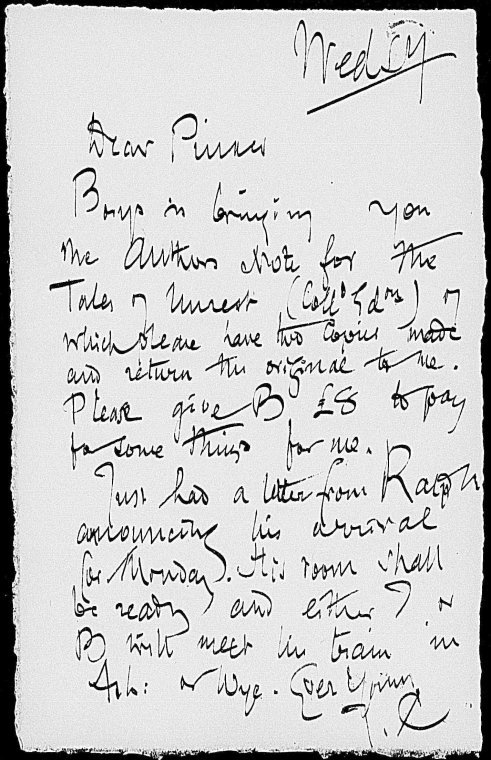 Wedsy
Dear Pinker
Borys is bringing you
the Authors Note for the
Tales of Unrest (Coll'd Edon) of
which please have two copies made
and return the original to me.
Please give B £8 to pay
for some things for me.
Just had a letter from Ralph
announcing his arrival
for Monday. His room shall
be ready and either I or
B will meet his train in
Ash: or Wye. Ever Yours
J. C